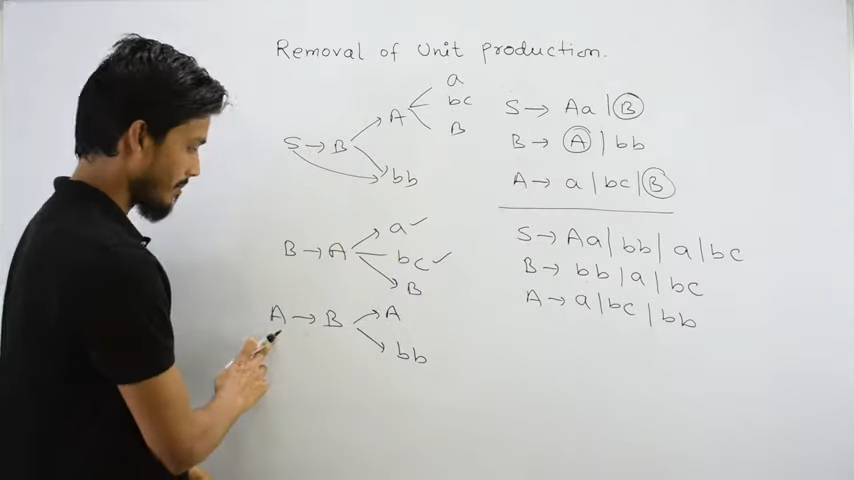 Removal of Unit production.
a
S → B → A → bc
B
bb
S → Aa | B
B → A | bb
A → a | bc | B
B → A → a ✓
bc ✓
B
A → B → A
bb
S → Aa | bb | a | bc
B → bb | a | bc
A → a | bc | bb